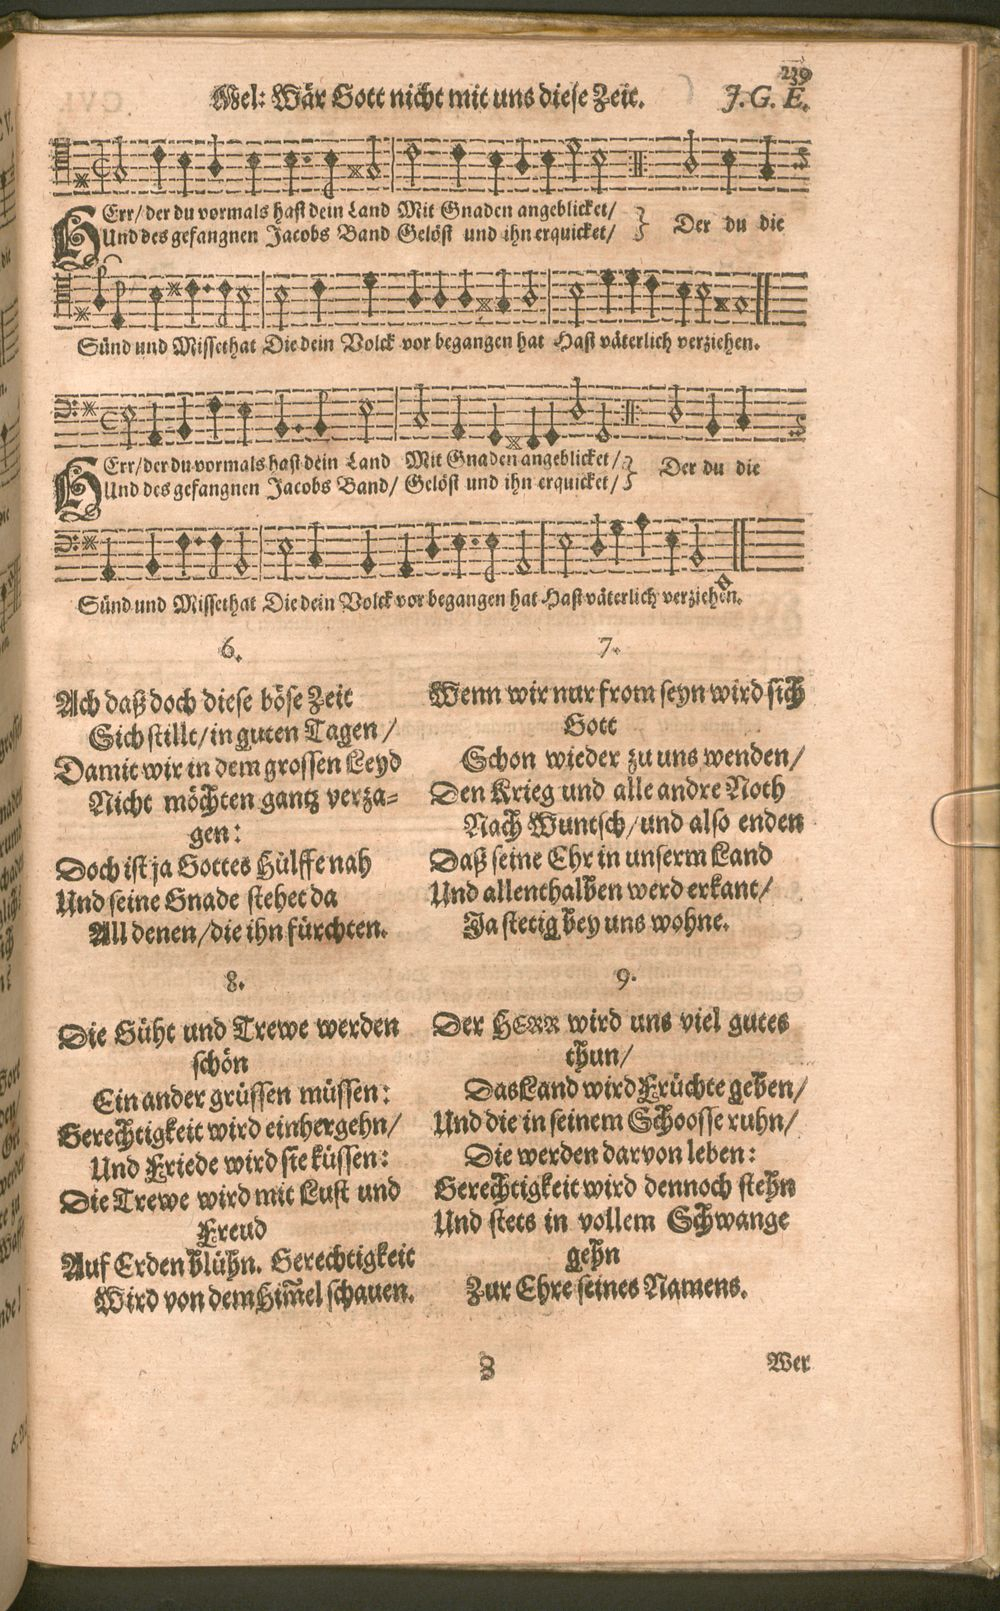 239
Mel: Wär Gott nicht mit uns diese Zeit. J. G. E.
HErr/ der du vormals hast dein Land Mit Gnaden angeblicket/
Und des gefangnen Jacobs Band Gelöst und ihn erquicket/
Der du die
Sünd und Missethat Die dein Volck vor begangen hat Hast väterlich verziehen.
HErr/ der du vormals hast dein Land Mit Gnaden angeblicket/
Und des gefangnen Jacobs Band/ Gelöst und ihn erquicket/
Der du die
Sünd und Missethat Die dein Volck vor begangen hat Hast väterlich verziehen.
6.
Ach daß doch diese böse Zeit
Sich stillt/ in guten Tagen/
Damit wir in dem grossen Leyd
Nicht möchten gantz verza-
gen:
Doch ist ja Gottes Hülffe nah
Und seine Gnade stehet da
All denen/ die ihn fürchten.
7.
Wenn wir nur from seyn wird sich
Gott
Schon wieder zu uns wenden/
Den Krieg und alle andre Noth
Nach Wuntsch/ und also enden
Daß seine Ehr in unserm Land
Und allenthalben werd erkant/
Ja stetig bey uns wohne.
8.
Die Güht und Trewe werden
schön
Ein ander grüssen müssen:
Gerechtigkeit wird einhergehn/
Und Friede wird sie küssen:
Die Trewe wird mit Lust und
Freud
Auf Erden blühn. Gerechtigkeit
Wird von dem Him̃el schauen.
9.
Der HERR wird uns viel gutes
thun/
Das Land wird Früchte geben/
Und die in seinem Schoosse ruhn/
Die werden darvon leben:
Gerechtigkeit wird dennoch stehn
Und stets in vollem Schwange
gehn
Zur Ehre seines Namens.
Wer